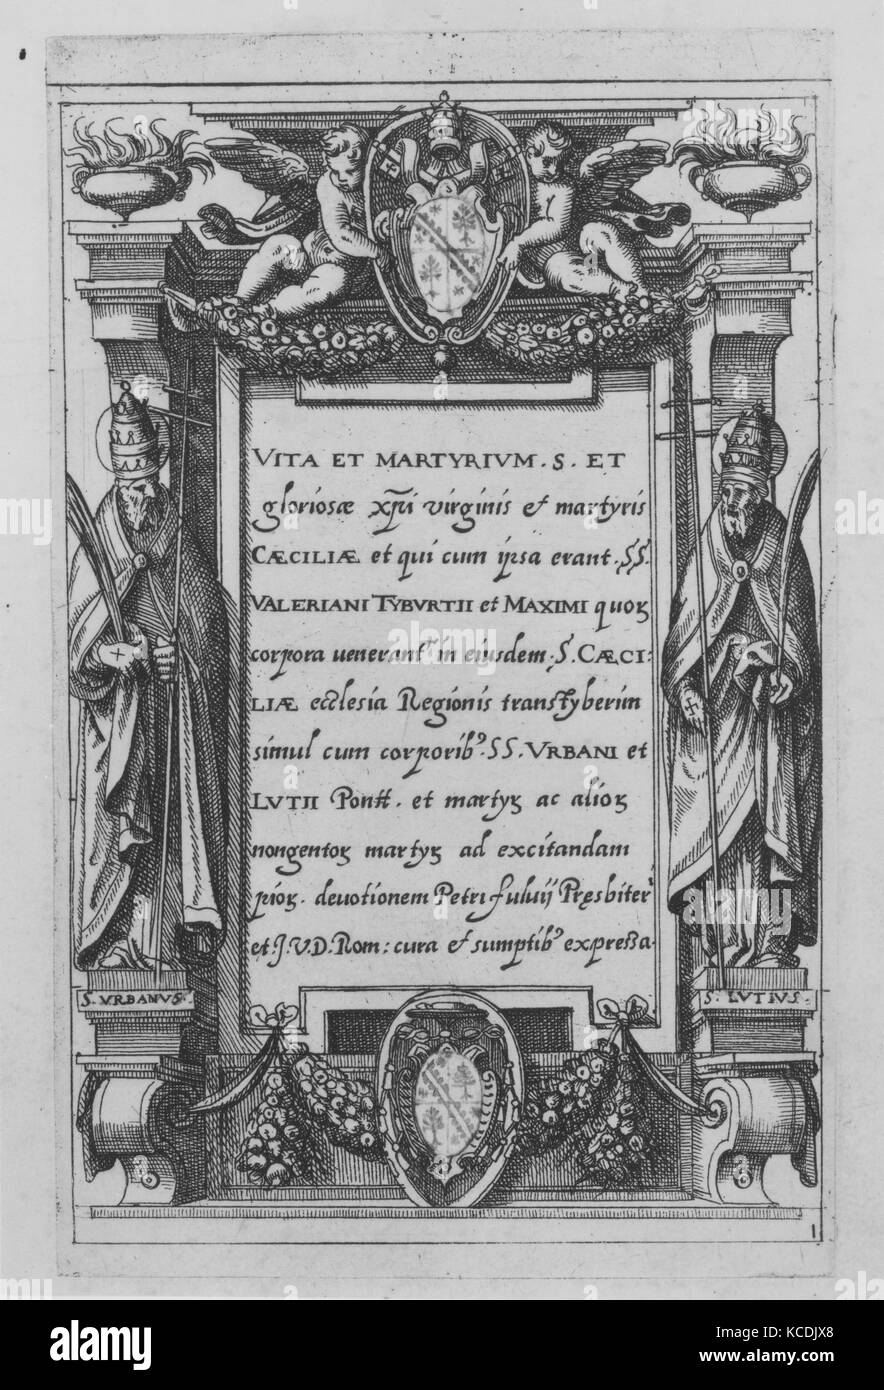 VITA ET MARTYRIVM. S. ET
gloriosæ xp̃i virginis et martyris
CÆCILIÆ et qui cum ipsa erant. SS.
VALERIANI TYBVRTII et MAXIMI quoꝝ
corpora venerantᷣ in eiusdem. S. CÆCI:
LIÆ ecclesia Regionis transtyberim
simul cum corporibꝰ. SS. VRBANI et
LVTII Pontt. et martyꝝ ac alioꝝ
nongentoꝝ martyꝝ ad excitandam
pioꝝ. deuotionem Petri fuluij Pręsbiteri
et J.V.D. Rom: cura et sumptibꝰ expressa.
S. VRBANVS.
S. LVTIVS.
1
alamy
Image ID: KCDJX8
www.alamy.com